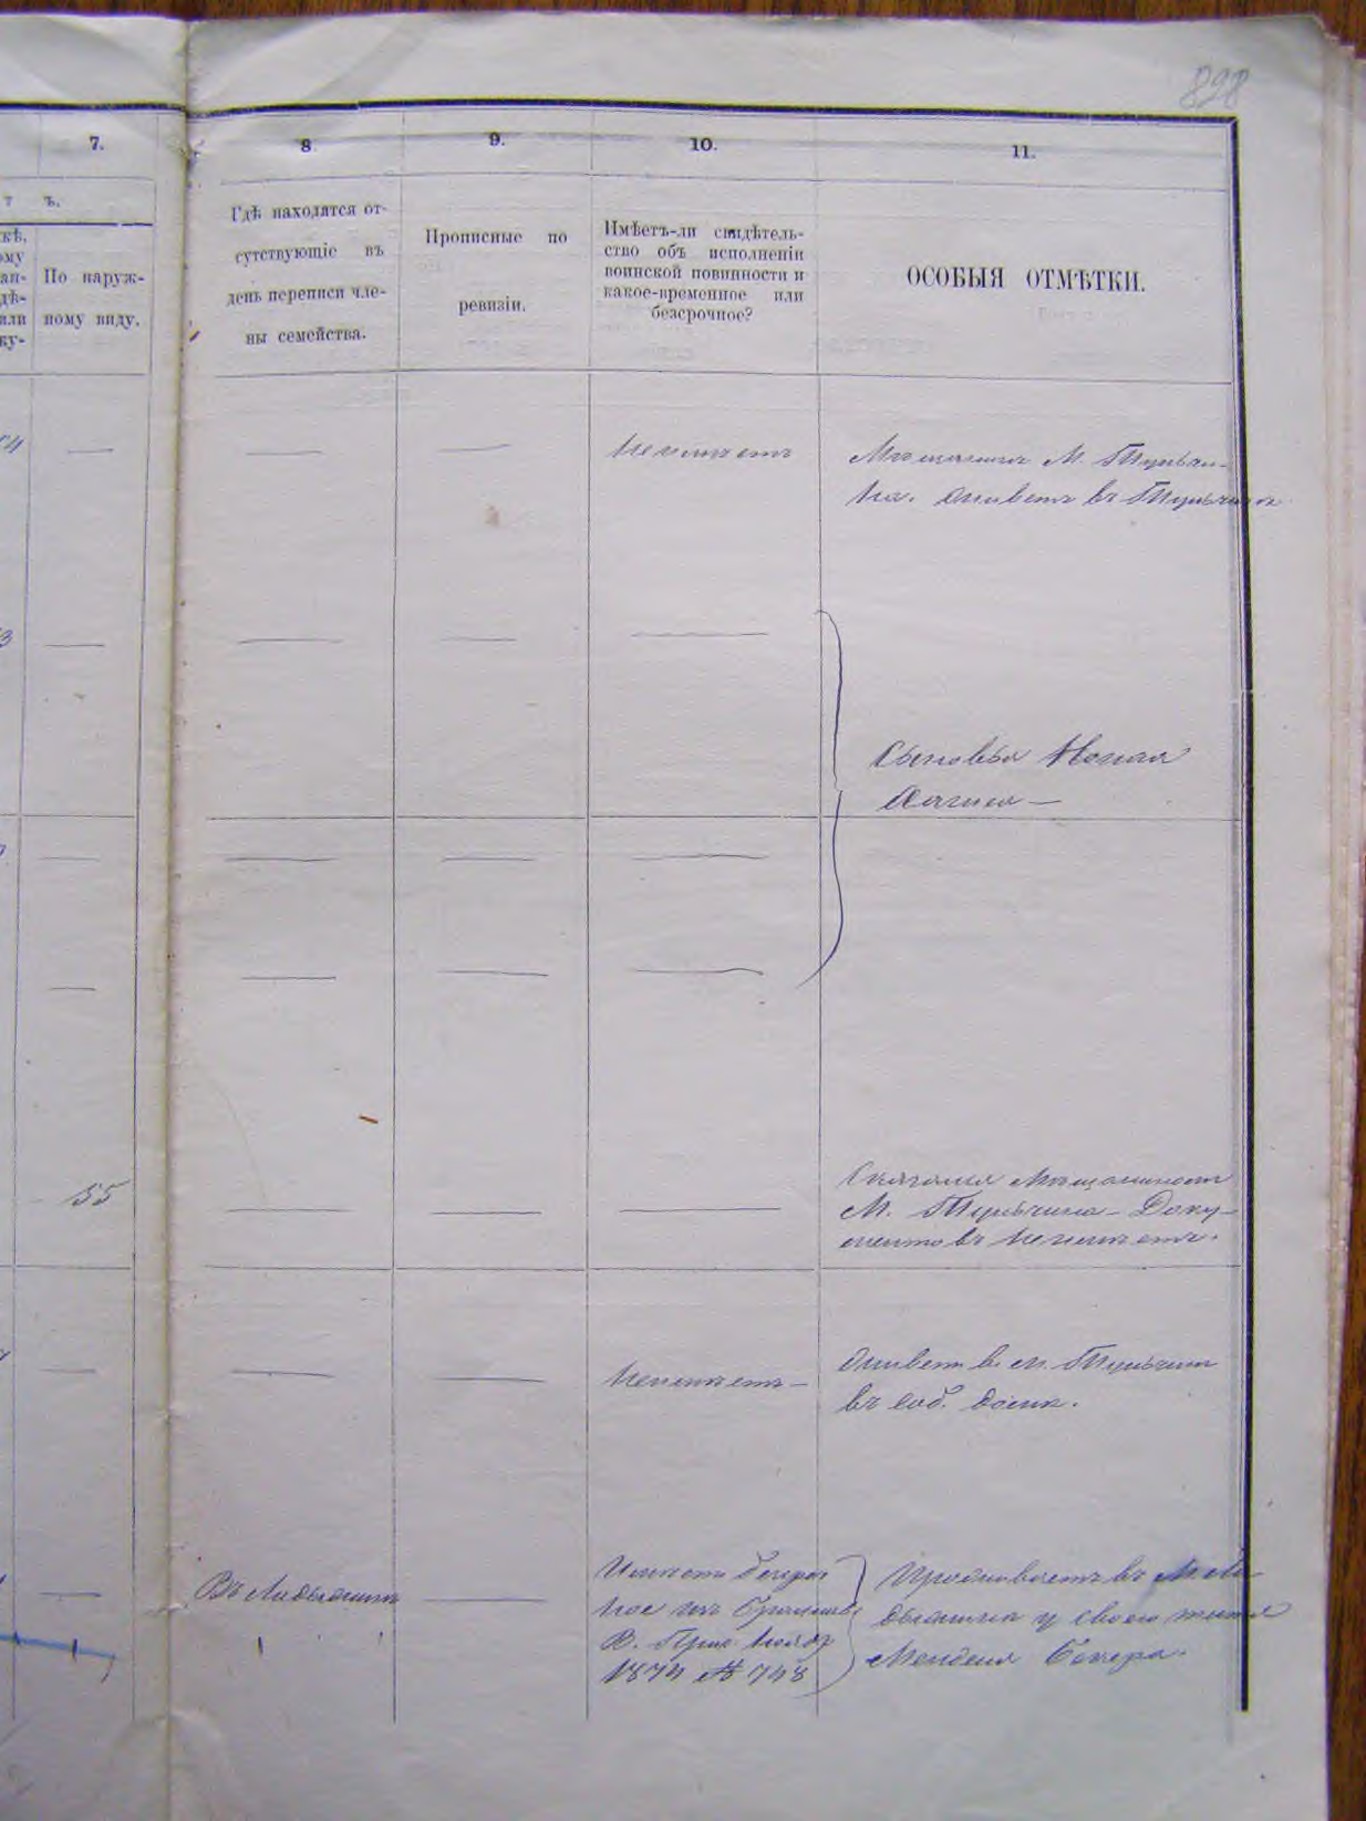 898
7.
8
9.
10.
11.
т ъ.
По наруж-
ному виду.
Гдѣ находятся от-
сутствующіе въ
день переписи чле-
ны семейства.
Прописные по
ревизіи.
Имѣетъ-ли свидѣтель-
ство объ исполненіи
воинской повинности и
какое-временное или
безсрочное?
ОСОБЫЯ ОТМѢТКИ.
— — — Неимѣетъ
Мѣщанинъ М. Тульчи-
на. Живетъ въ Тульчинѣ
— — — —
Сыновья
— — — —
— — — —
55 — — —
Сказался Мѣщаниномъ
М. Тульчина – Доку-
ментовъ неимѣетъ.
— — — Неимѣетъ –
Живетъ в. м. Тульчинѣ
въ соб. домѣ.
— Въ Ладыжинѣ —
Имѣетъ
1874 № 748
Проживаетъ въ М. Ла-
дыжинѣ у своего тестя